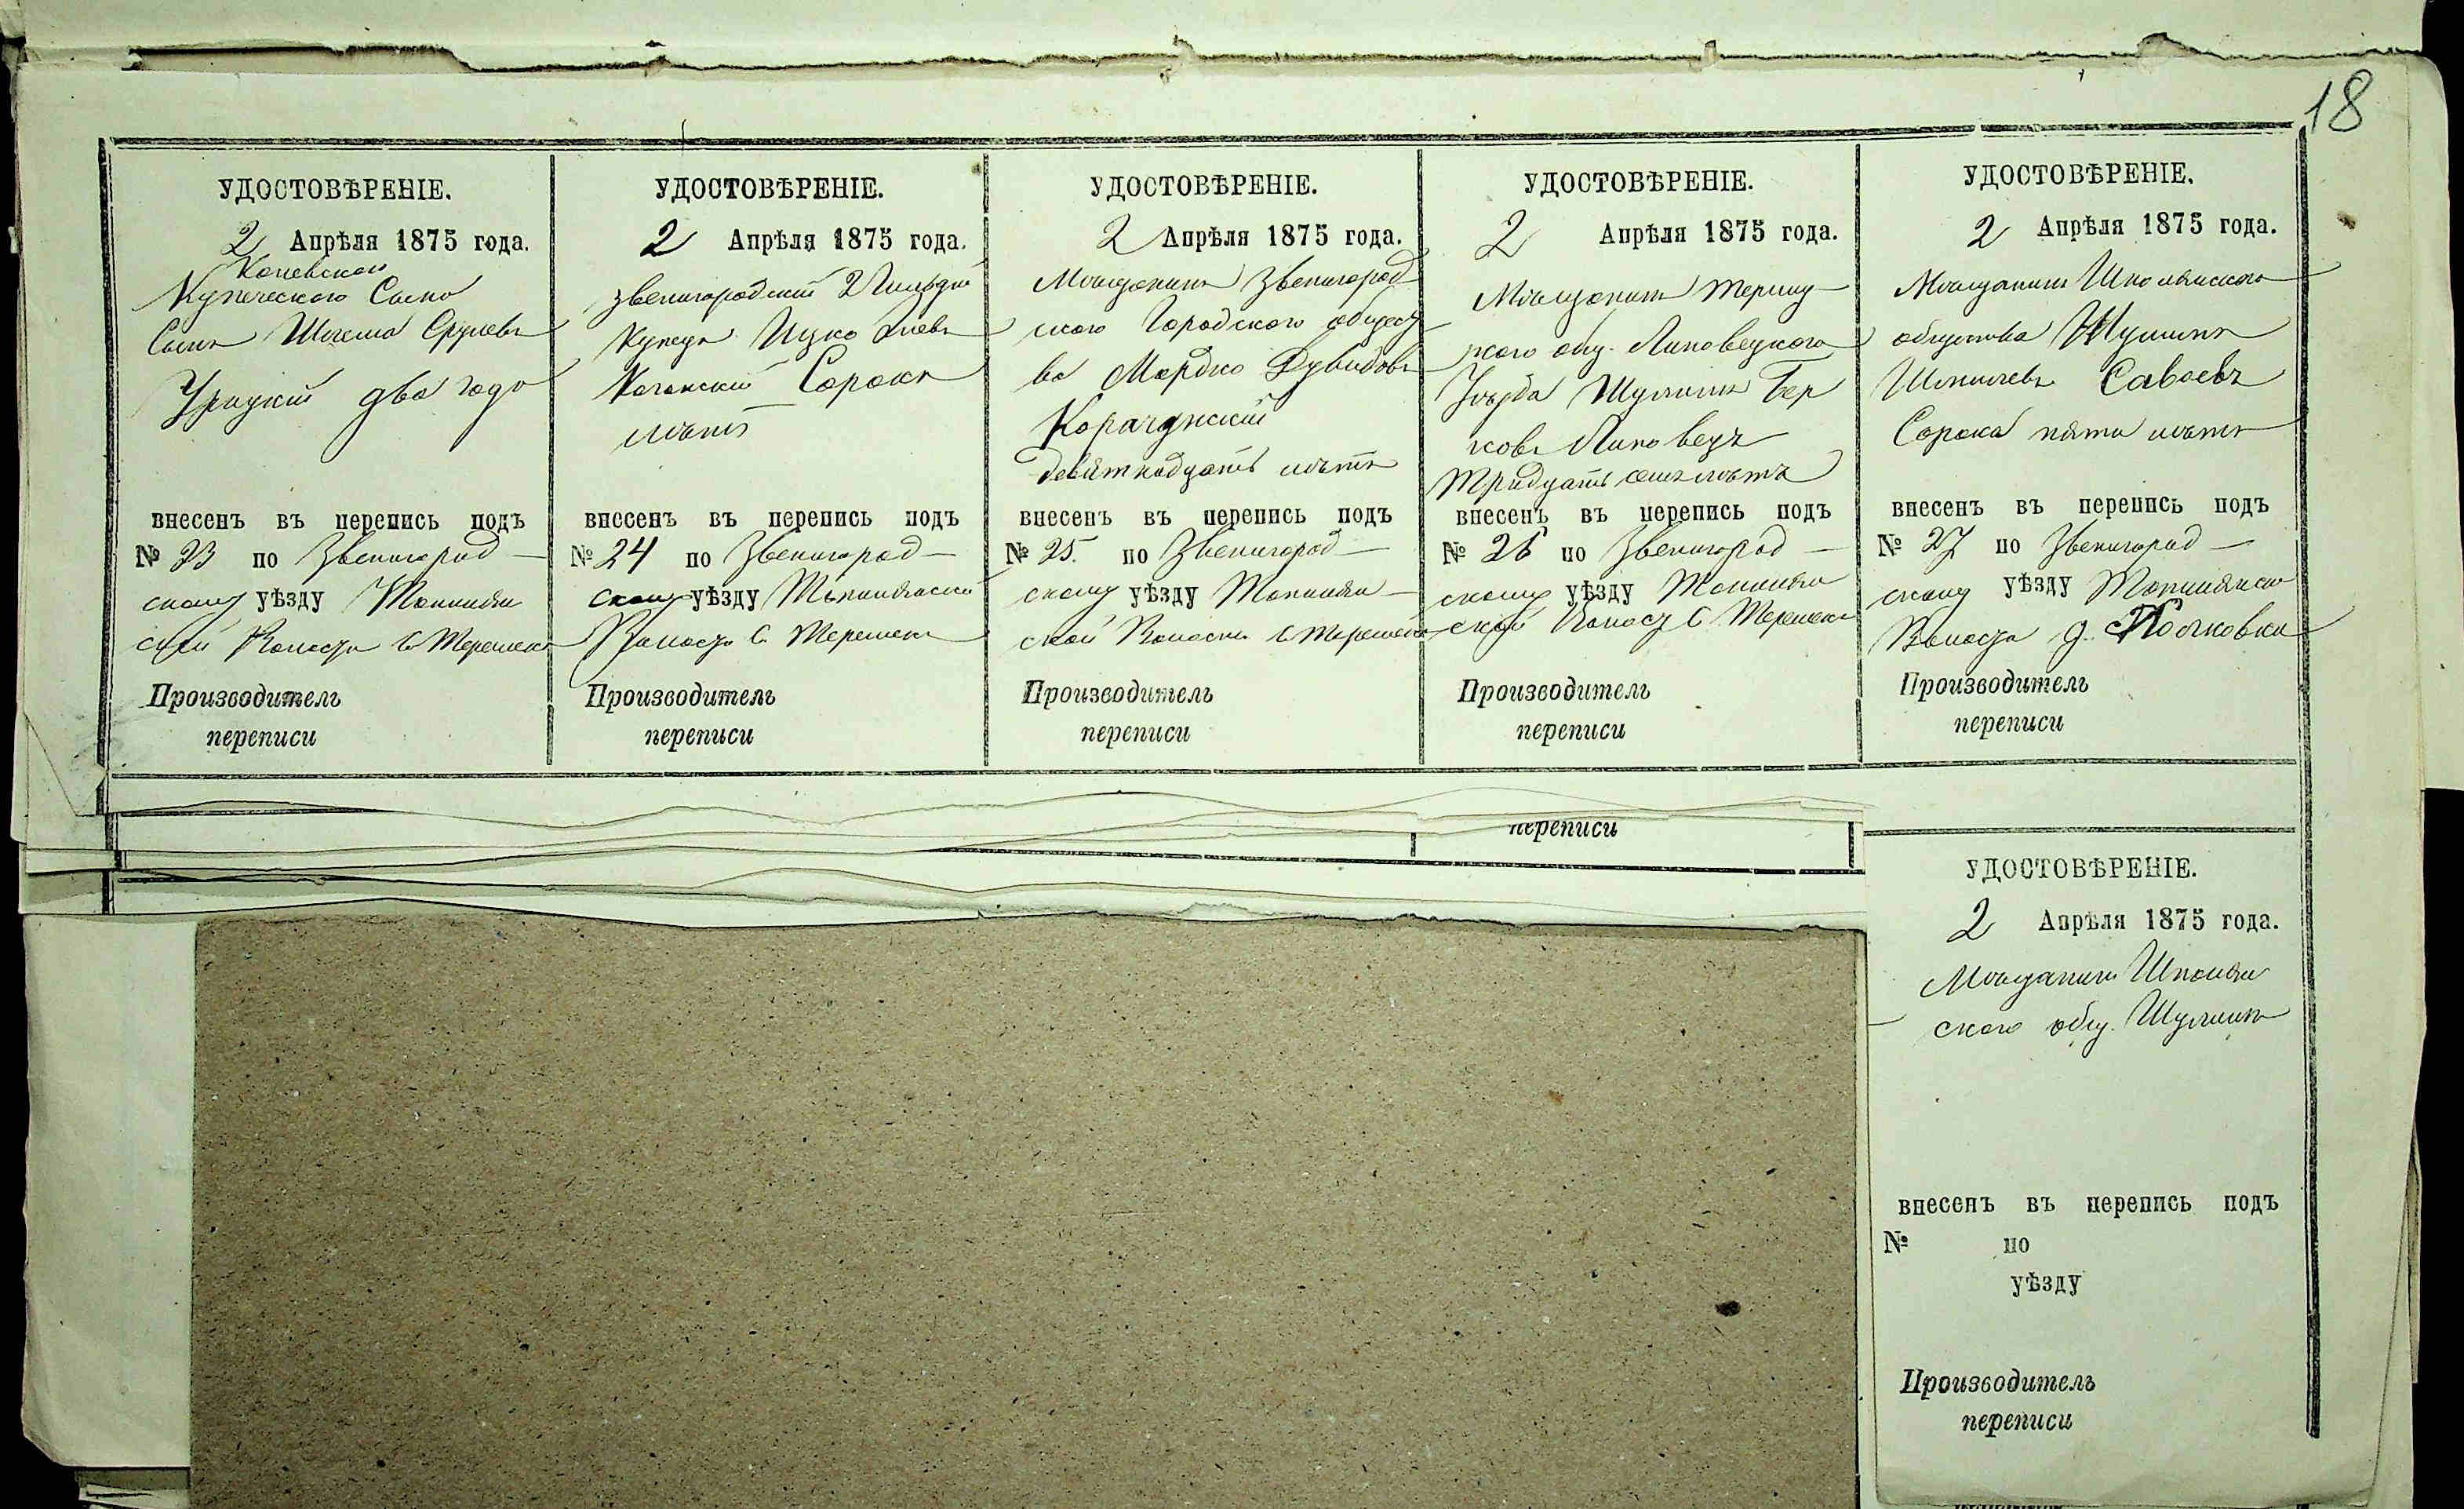 18
УДОСТОВѢРЕНІЕ.
2 Апрѣля 1875 года.
Каневскаго
Купеческого Сына
Сынъ Срулевъ
Урицкій два года
внесенъ въ перепись подъ
№ 23 по Звенигород-
скому уѣзду Толмач
ской Волости С Терешки
Производитель
переписи
УДОСТОВѢРЕНІЕ.
2 Апрѣля 1875 года.
Звенигородскій 2 Гильдіи
Купецъ Ицко
Каганскій Сорокъ
лѣтъ
внесенъ въ перепись подъ
№ 24 по Звенигород-
скому уѣзду
Волости С Терешки
Производитель
переписи
УДОСТОВѢРЕНІЕ.
2 Апрѣля 1875 года.
Мѣщанинъ Звенигород
ского Городского общест
ва Мордко Дувидовъ
девятнадцать лѣтъ
внесенъ въ перепись подъ
№ 25. по Звенигород-
скому уѣзду
ской Волости С Терешки
Производитель
переписи
УДОСТОВѢРЕНІЕ.
2 Апрѣля 1875 года.
Мѣщанинъ
ского общ. Липовецкого
уѣзда Шулимъ Бер
ковъ Липовецъ
тридцать семь лѣтъ
внесенъ въ перепись подъ
№ 26 по Звенигород-
скому уѣзду
ской Волости С Терешки
Производитель
переписи
УДОСТОВѢРЕНІЕ.
2 Апрѣля 1875 года.
Мѣщанинъ Шполянского
общества Шулимъ
Шмилевъ Саваевъ
Сорока пяти лѣтъ
внесенъ въ перепись подъ
№ 27 по Звенигород-
скому уѣзду
Волости д.
Производитель
переписи
переписи
УДОСТОВѢРЕНІЕ.
2 Апрѣля 1875 года.
Мѣщанинъ Шполян
ского общ. Шулимъ
внесенъ въ перепись подъ
№ по
уѣзду
Производитель
переписи